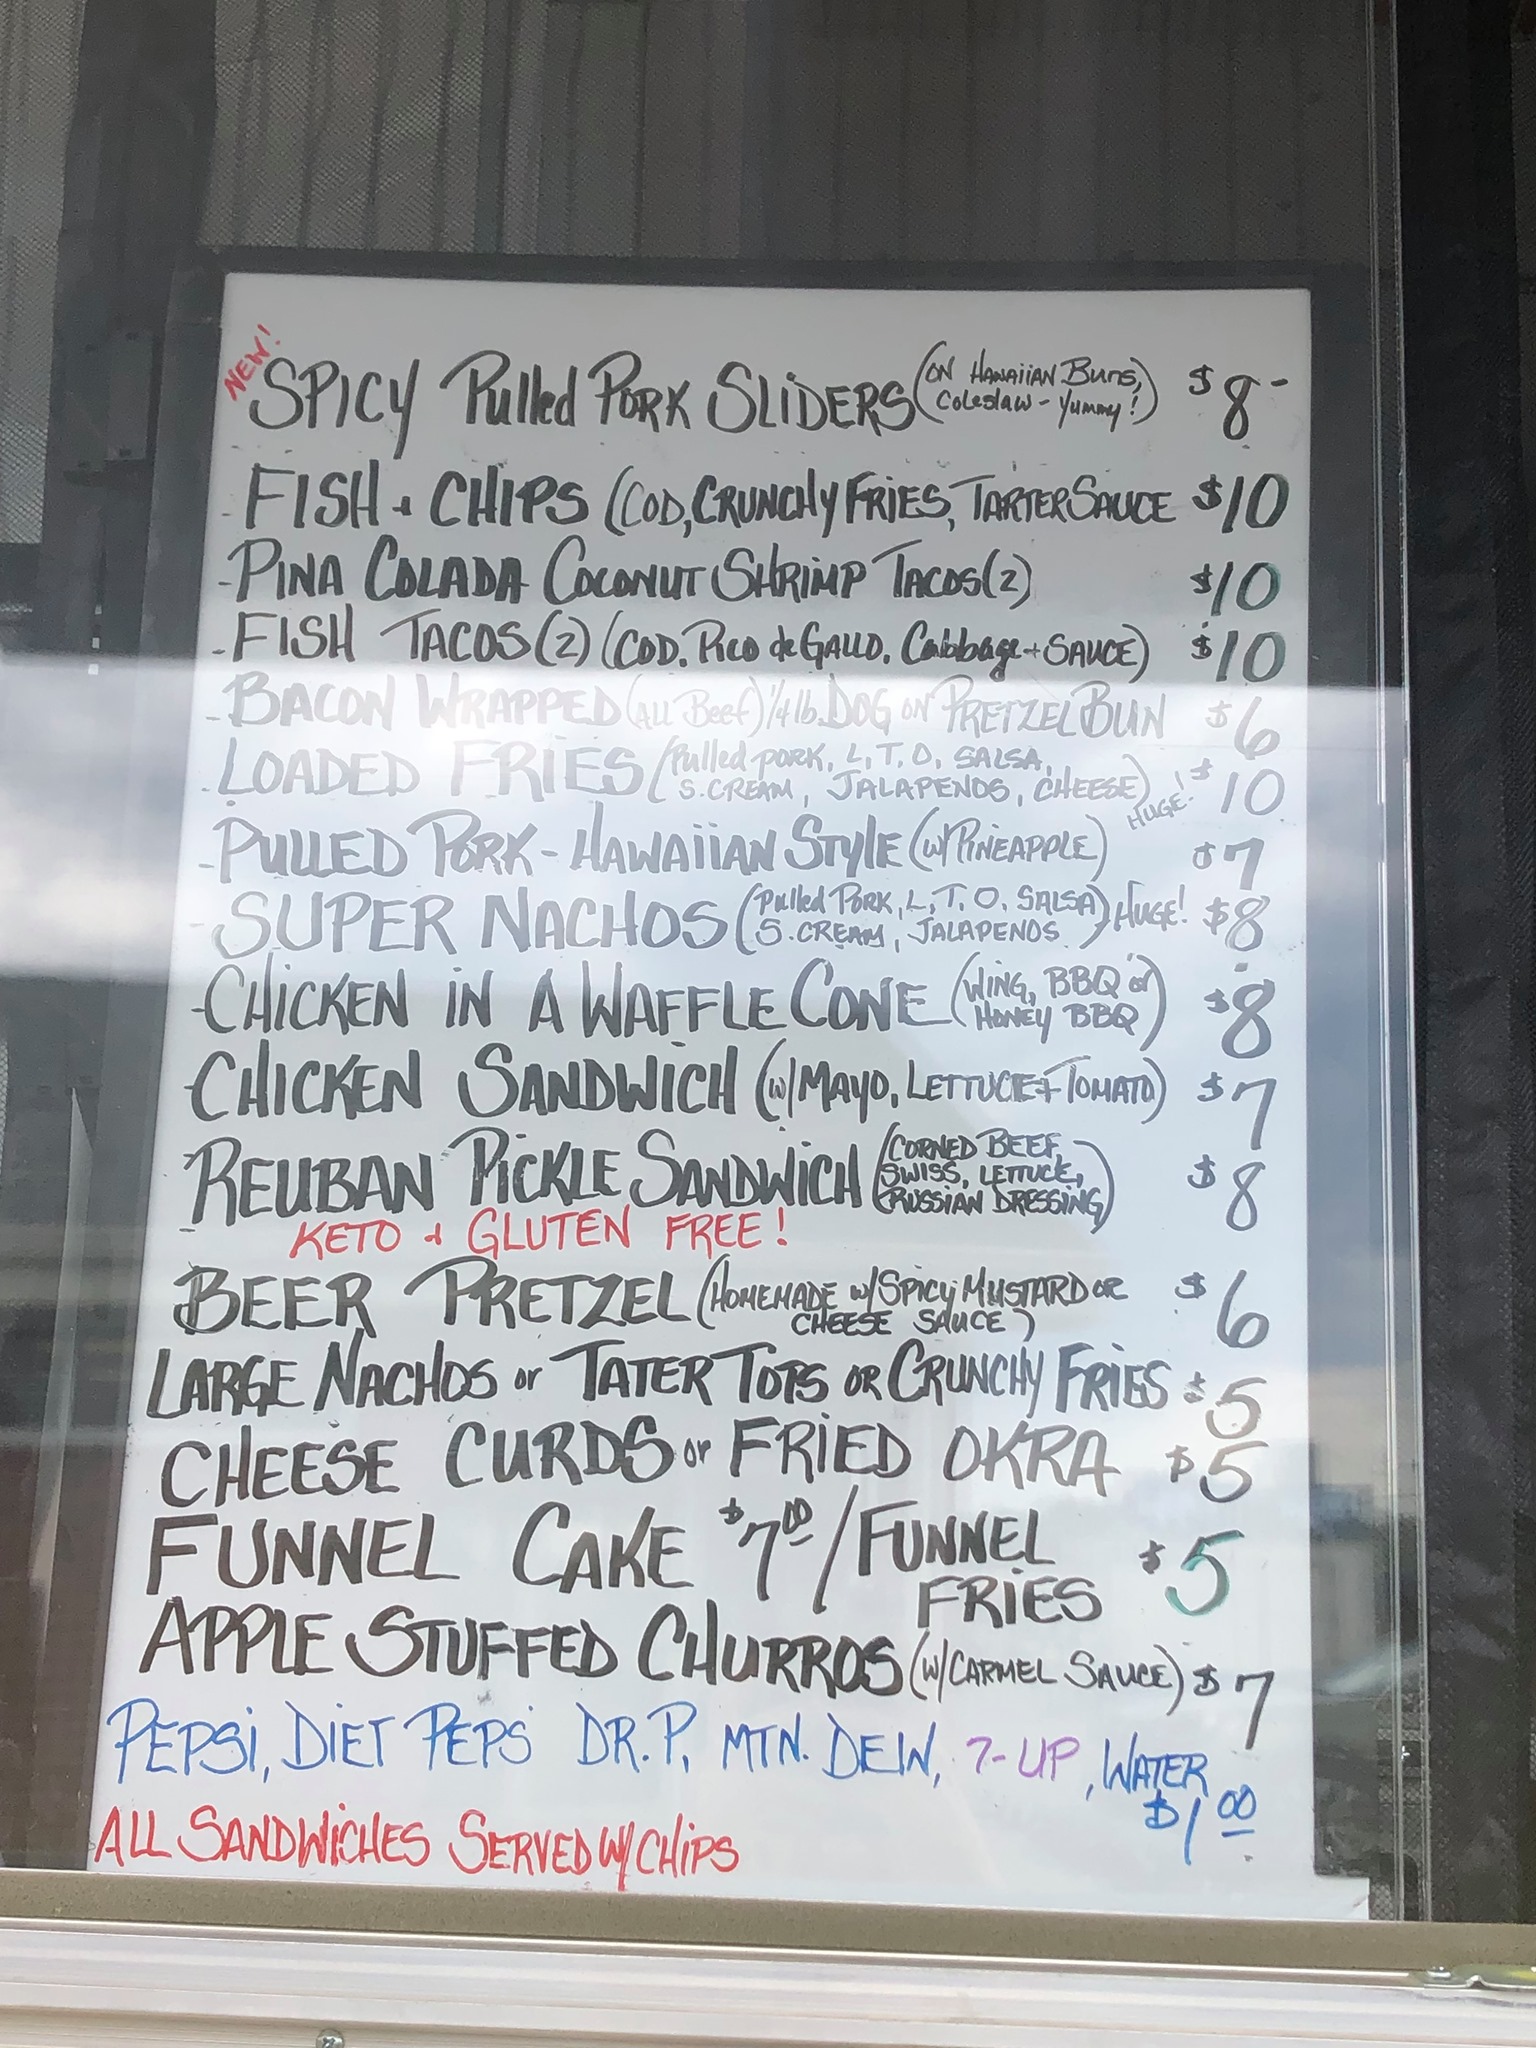 NEW!
SPICY Pulled PORK SLIDERS (ON HAWAIIAN BUNS, $8-
COLESLAW - YUMMY!)
- FISH + CHIPS (COD, CRUNCHY FRIES, TARTER SAUCE $10
- PINA COLADA COCONUT SHRIMP TACOS (2) $10
- FISH TACOS (2) (COD, PICO de GALLO, Cabbage + SAUCE) $10
- BACON WRAPPED (ALL Beef) 1/4 lb. DOG ON PRETZEL BUN $6
- LOADED FRIES (Pulled PORK, L, T, O, SALSA, $10
S. CREAM, JALAPENOS, CHEESE) HUGE!
- PULLED PORK - HAWAIIAN STYLE (W/ PINEAPPLE) $7
- SUPER NACHOS (Pulled PORK, L, T, O, SALSA) HUGE! $8
S. CREAM, JALAPENOS )
- CHICKEN IN A WAFFLE CONE (WING, BBQ or $8
HONEY BBQ)
- CHICKEN SANDWICH (W/ MAYO, LETTUCE + TOMATO) $7
- REUBAN PICKLE SANDWICH (CORNED BEEF, $8
SWISS, LETTUCE,
RUSSIAN DRESSING)
KETO + GLUTEN FREE!
BEER PRETZEL (HOMEMADE W/ SPICY MUSTARD OR $6
CHEESE SAUCE)
LARGE NACHOS or TATER TOTS OR CRUNCHY FRIES $5
CHEESE CURDS or FRIED OKRA $5
FUNNEL CAKE $7.00 / FUNNEL $5
FRIES
APPLE STUFFED CHURROS (W/ CARMEL SAUCE) $7
PEPSI, DIET PEPSI DR. P, MTN. DEW, 7-UP, WATER
$1.00
ALL SANDWICHES SERVED W/ CHIPS